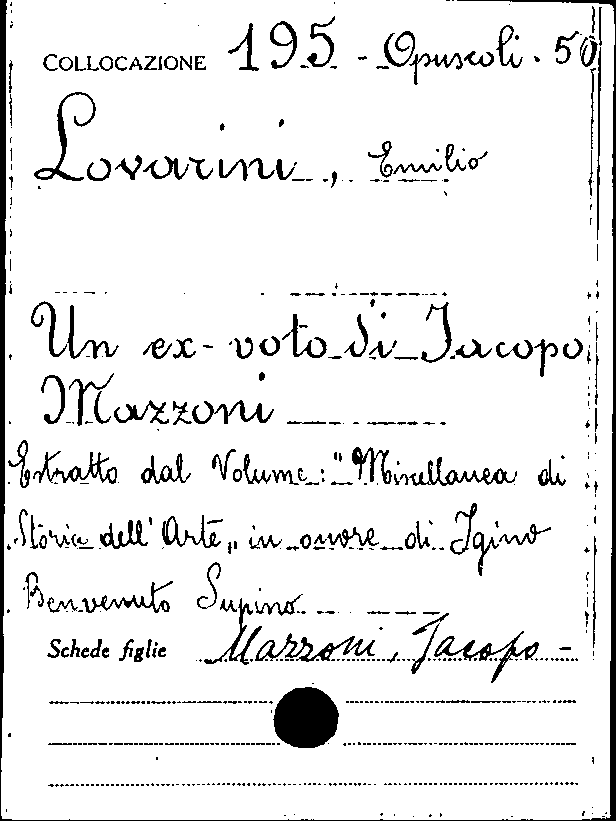 COLLOCAZIONE 195 - Opuscoli. 50
Lovarini, Emilio
Un ex-voto di Jacopo
Mazzoni
Estratto dal Volume: "Miscellanea di
Storia dell'Arte" in onore di Igino
Benvenuto Supino
Schede figlie Mazzoni, Jacopo -